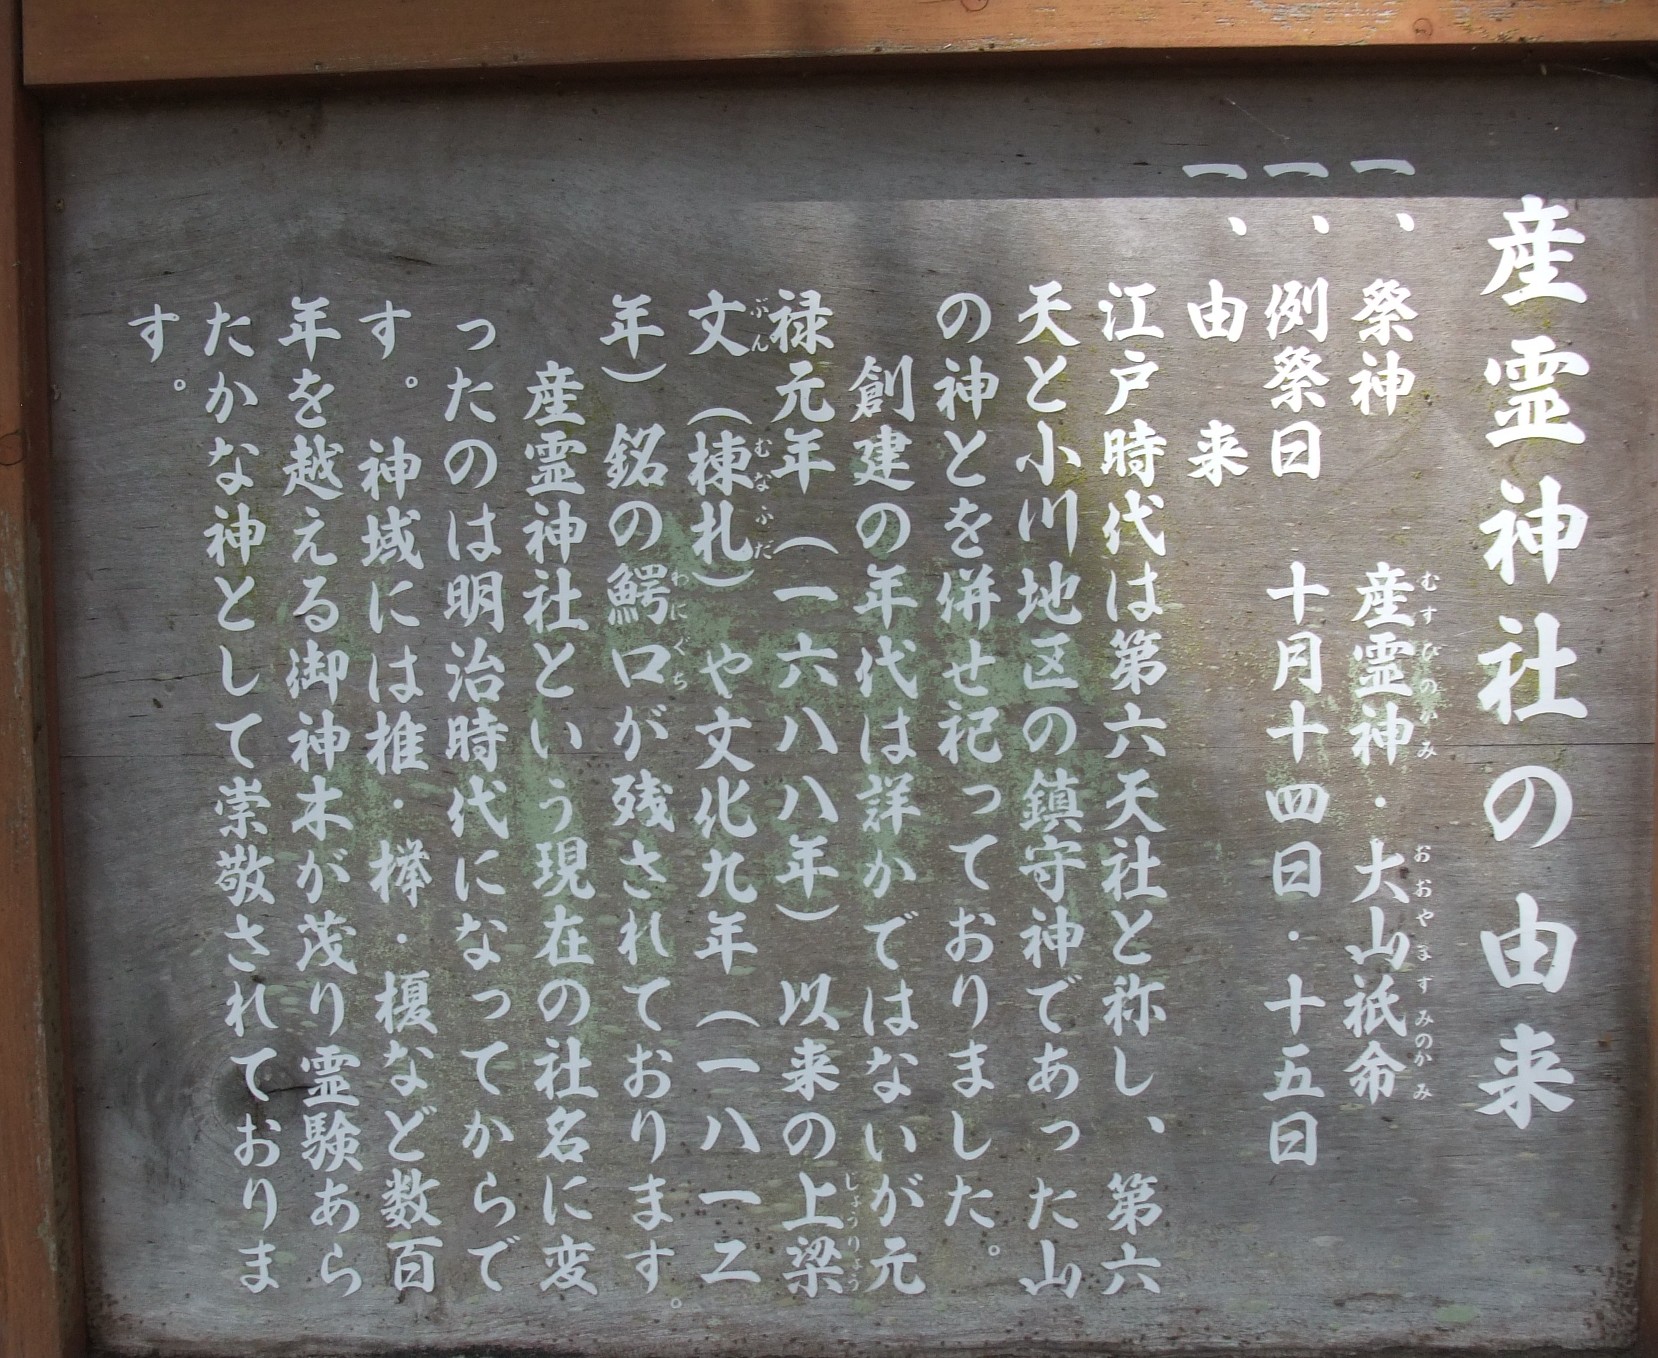 産霊神社の由来
一、祭神　産霊神・大山祇命
むすびのかみ　おおやますみのかみ
一、例祭日　十月十四日・十五日
一、由来
江戸時代は第六天社と称し、第六
天と小川地区の鎮守神であった山
の神とを併せ祀っておりました。
創建の年代は詳かではないが元
禄元年（一六八八年）以来の上梁
しょうりょう
文（棟札）や文化九年（一八一二
ぶん　むなふだ
年）銘の鰐口が残されております。
わにぐち
産霊神社という現在の社名に変
ったのは明治時代になってからで
す。神域には椎・欅・榎など数百
年を越える御神木が茂り霊験あら
たかな神として崇敬されておりま
す。